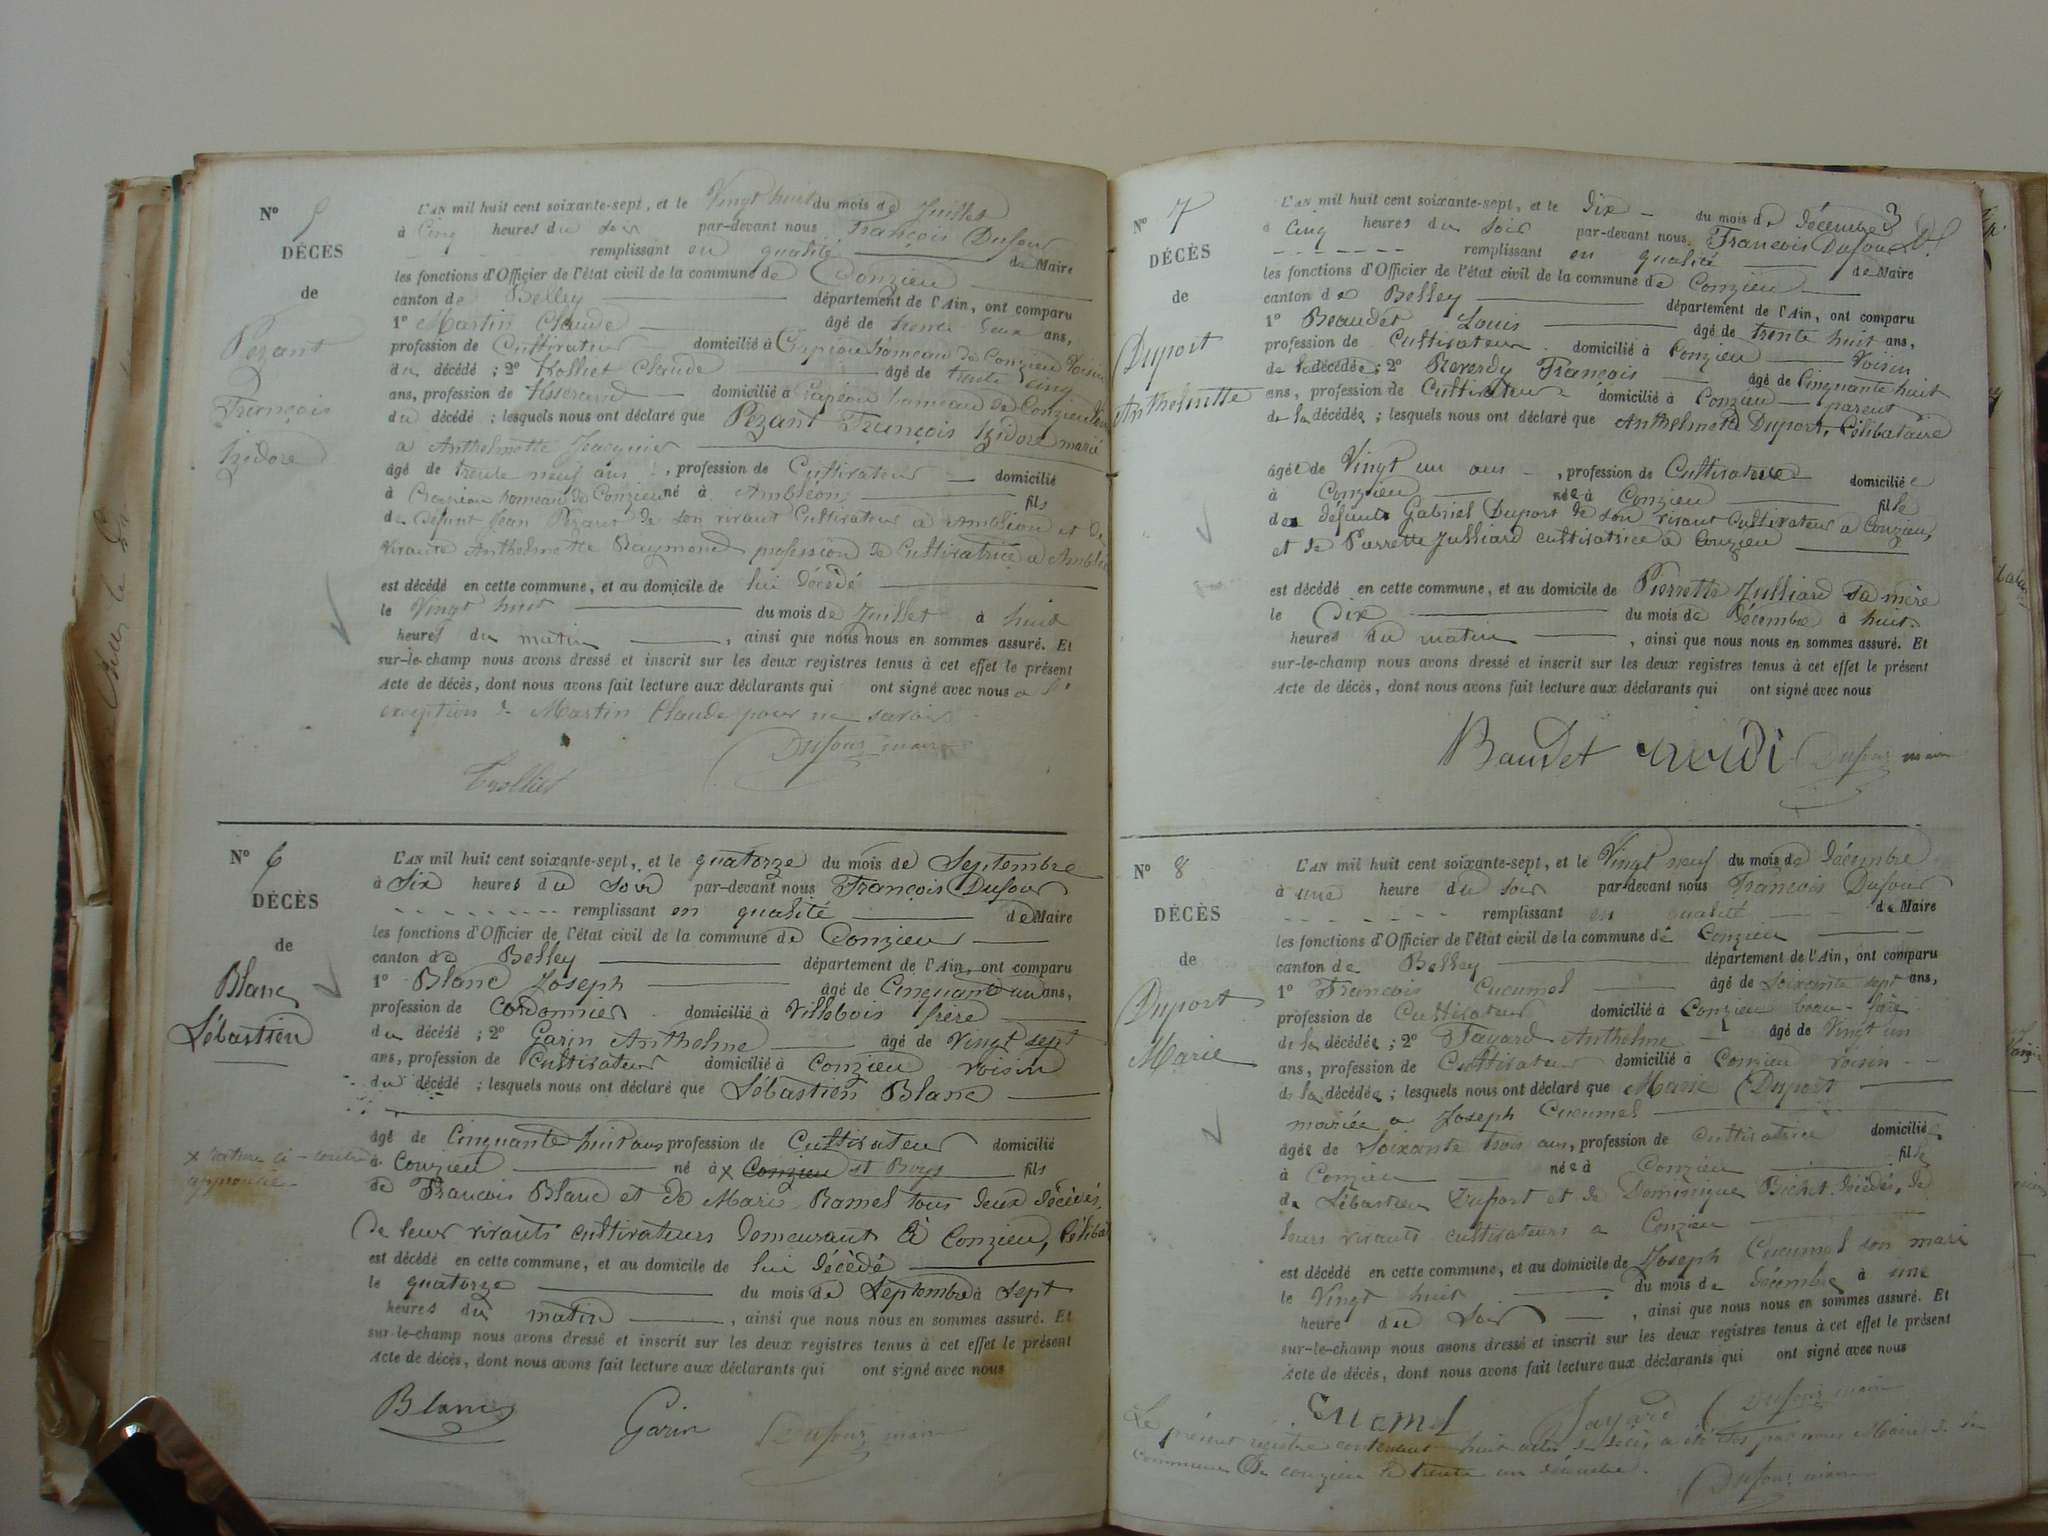 N° 5
DÉCÈS
de
Pezant
François
Izidore
L'AN mil huit cent soixante-sept, et le Vingt huit du mois de Juillet
à Cinq heures du soir par-devant nous François Dufour
remplissant en qualité de Maire
les fonctions d'Officier de l'état civil de la commune de Conzieu
canton de Belley département de l'Ain, ont comparu
1° Martin Claude âgé de trente deux ans,
profession de Cultivateur domicilié à Crapéou hameau de Conzieu Voisin
du décédé ; 2° Trolliet Claude âgé de trente cinq
ans, profession de Tisserand domicilié à Crapéou hameau de Conzieu
du décédé ; lesquels nous ont déclaré que Pezant François Izidore marié
a Anthelmette Jacquier
âgé de trente neuf ans, profession de Cultivateur domicilié
à Crapéou hameau de Conzieu né à Ambléon fils
de défunt Jean Pezant de son vivant Cultivateur a Ambléon et de
vivante Anthelmette Raymond profession de Cultivatrice a Ambléon
est décédé en cette commune, et au domicile de lui décédé
le Vingt huit du mois de Juillet à huit
heures du matin, ainsi que nous nous en sommes assuré. Et
sur-le-champ nous avons dressé et inscrit sur les deux registres tenus à cet effet le présent
Acte de décès, dont nous avons fait lecture aux déclarants qui ont signé avec nous a l'
exception de Martin Claude pour ne savoir
Dufour maire
Trolliet
N° 6
DÉCÈS
de
Blanc
Sébastien
L'AN mil huit cent soixante-sept, et le quatorze du mois de Septembre
à Six heures du Soir par-devant nous François Dufour
remplissant en qualité de Maire
les fonctions d'Officier de l'état civil de la commune de Conzieu
canton de Belley département de l'Ain, ont comparu
1° Blanc Joseph âgé de Cinquante un ans,
profession de Cordonnier domicilié à Villebois frère
du décédé ; 2° Garin Anthelme âgé de Vingt sept
ans, profession de Cultivateur domicilié à Conzieu voisin
du décédé ; lesquels nous ont déclaré que Sébastien Blanc
âgé de Cinquante huit ans profession de Cultivateur domicilié
x rature ci-contre
approuvée
à Conzieu né à x Conzieu st Boys fils
de François Blanc et de Marie Ramel tous deux décédés,
de leur vivants cultivateurs demeurant à Conzieu, Célibat
est décédé en cette commune, et au domicile de lui décédé
le quatorze du mois de Septembre à Sept
heures du matin, ainsi que nous nous en sommes assuré. Et
sur-le-champ nous avons dressé et inscrit sur les deux registres tenus à cet effet le présent
Acte de décès, dont nous avons fait lecture aux déclarants qui ont signé avec nous
Blanc Garin Dufour maire
N° 7
DÉCÈS
de
Duport
Anthelmette
L'AN mil huit cent soixante-sept, et le Dix du mois de Décembre 3
à Cinq heures du Soir par-devant nous François Dufour
remplissant en qualité de Maire
les fonctions d'Officier de l'état civil de la commune de Conzieu
canton de Belley département de l'Ain, ont comparu
1° Beaudet Louis âgé de trente huit ans,
profession de Cultivateur domicilié à Conzieu Voisin
de la décédée ; 2° Reverdy François âgé de Cinquante huit
ans, profession de Cultivateur domicilié à Conzieu parent
de la décédée ; lesquels nous ont déclaré que Anthelmette Duport, Célibataire
âgée de Vingt un ans, profession de Cultivatrice domiciliée
à Conzieu née à Conzieu fille
de défunt Gabriel Duport de son vivant Cultivateur a Conzieu,
et de Pierrette Julliard cultivatrice a Conzieu
est décédé en cette commune, et au domicile de Pierrette Julliard sa mère
le Dix du mois de Décembre à huit
heures du matin, ainsi que nous nous en sommes assuré. Et
sur-le-champ nous avons dressé et inscrit sur les deux registres tenus à cet effet le présent
Acte de décès, dont nous avons fait lecture aux déclarants qui ont signé avec nous
Baudet Dufour maire
N° 8
DÉCÈS
de
Duport
Marie
L'AN mil huit cent soixante-sept, et le Vingt neuf du mois de Décembre
à une heure du soir par-devant nous François Dufour
remplissant en qualité de Maire
les fonctions d'Officier de l'état civil de la commune de Conzieu
canton de Belley département de l'Ain, ont comparu
1° François Cucumel âgé de Soixante sept ans,
profession de Cultivateur domicilié à Conzieu beau-frère
de la décédée ; 2° Fayard Anthelme âgé de Vingt un
ans, profession de Cultivateur domicilié à Conzieu voisin
de la décédée ; lesquels nous ont déclaré que Marie Duport
mariée a Joseph Cucumel
âgée de Soixante trois ans, profession de Cultivatrice domiciliée
à Conzieu née à Conzieu fille
de Sébastien Duport et de Dominique Bichet décédés, de
leurs vivants cultivateurs a Conzieu
est décédé en cette commune, et au domicile de Joseph Cucumel son mari
le Vingt huit du mois de Décembre à une
heure du Soir, ainsi que nous nous en sommes assuré. Et
sur-le-champ nous avons dressé et inscrit sur les deux registres tenus à cet effet le présent
Acte de décès, dont nous avons fait lecture aux déclarants qui ont signé avec nous
Cucumel Fayard Dufour maire
Le présent registre contenant huit actes de décès a été clos par nous Maire de la
commune de Conzieu le trente un décembre.
Dufour maire